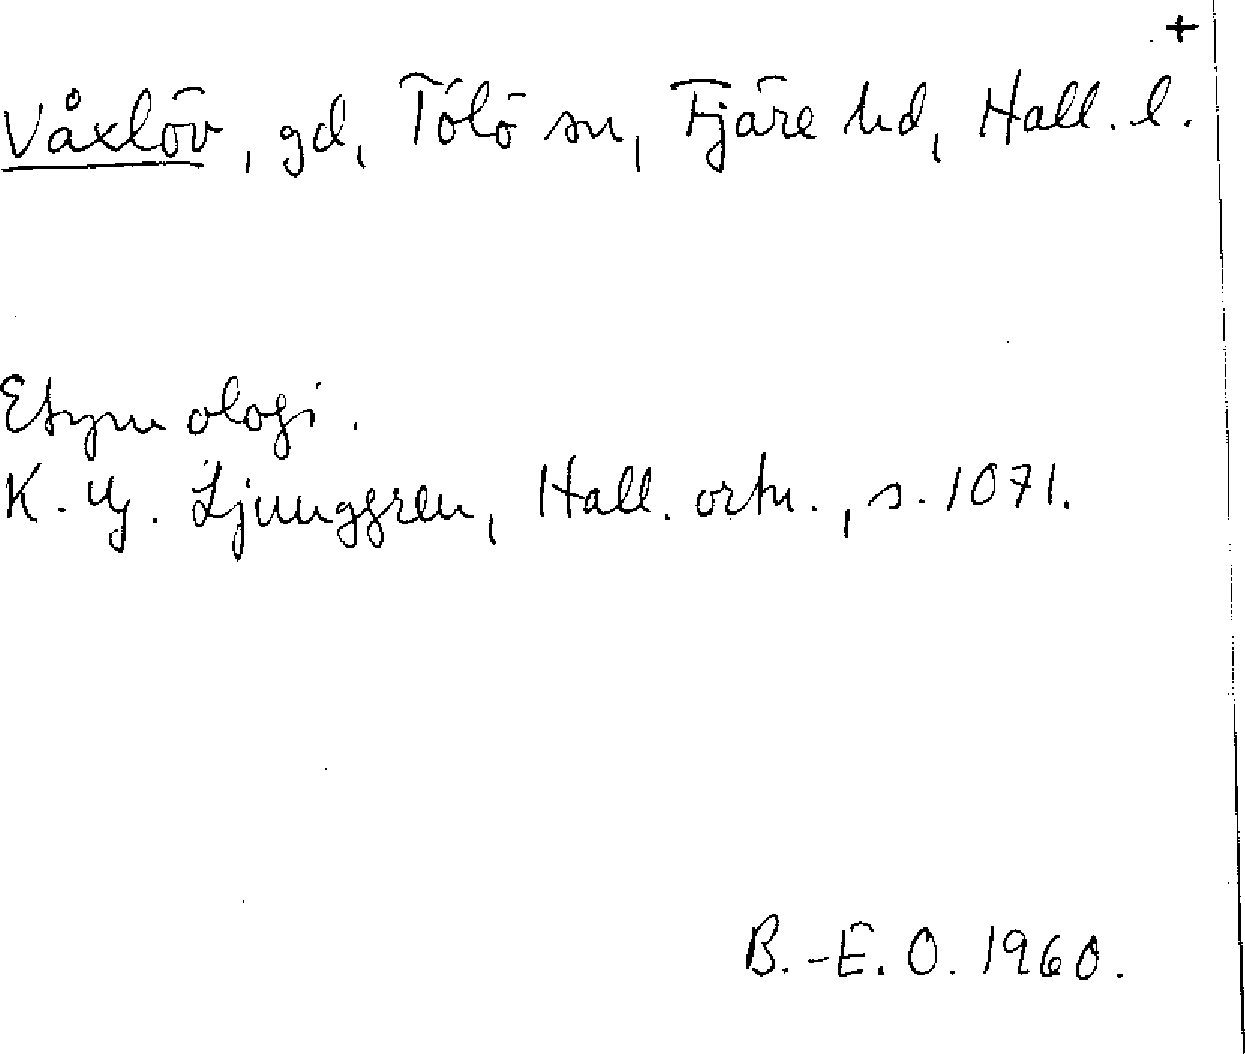 +
Våxlöv, gd, Tölö sn, Fjäre hd, Hall. l.
Etymologi.
K. G. Ljunggren, Hall. ortn., s. 1071.
B.-E. O. 1960.